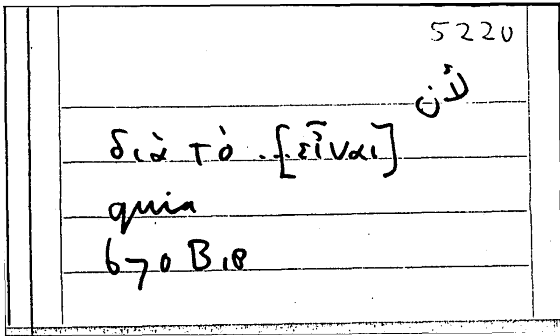 5220
لأن
διὰ τὸ .. [εἶναι]
quia
670 B 18